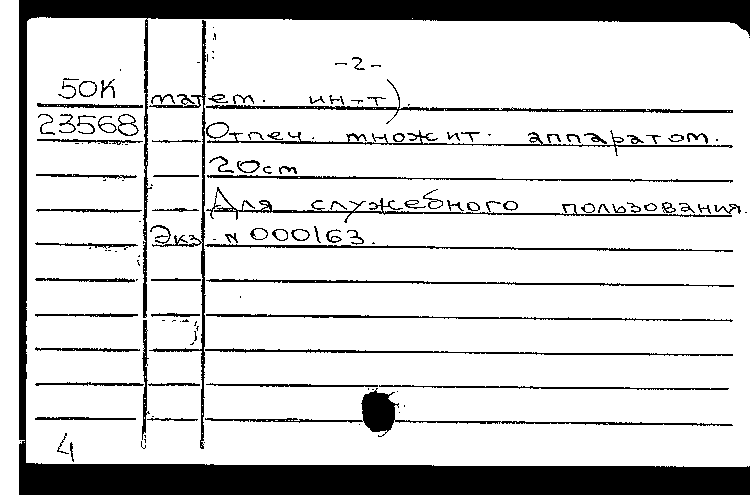 -2-
50К матем. ин-т).
23568 Отпеч. множит. аппаратом.
20см
Для служебного пользования.
Экз. N 000163.
4